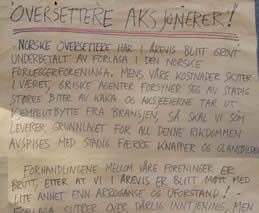 OVERSETTERE AKSJONERER!
NORSKE OVERSETTERE HAR I ÅREVIS BLITT GROVT
UNDERBETALT AV FORLAGA I DEN NORSKE
FORLEGGERFORENINGA. MENS VÅRE KOSTNADER SKYTER
I VÆRET, GRISKE AGENTER FORSYNER SEG AV STADIG
STØRRE BITER AV KAKA OG AKSJEEIERNE TAR UT
KJEMPEUTBYTTE FRA BRANSJEN, SÅ SKAL VI SOM
LEVERER GRUNNLAGET FOR ALL DENNE RIKDOMMEN
AVSPISES MED STADIG FÆRRE KNAPPER OG GLANSBILDER
FORHANDLINGENE MELLOM VÅRE FORENINGER ER
BRUTT, ETTER AT VI I ÅREVIS ER BLITT MØTT MED
LITE ANNET ENN ARROGANSE OG UFORSTAND!
FORLAGA SUTRER OVER DÅRLIG INNTJENING, MEN